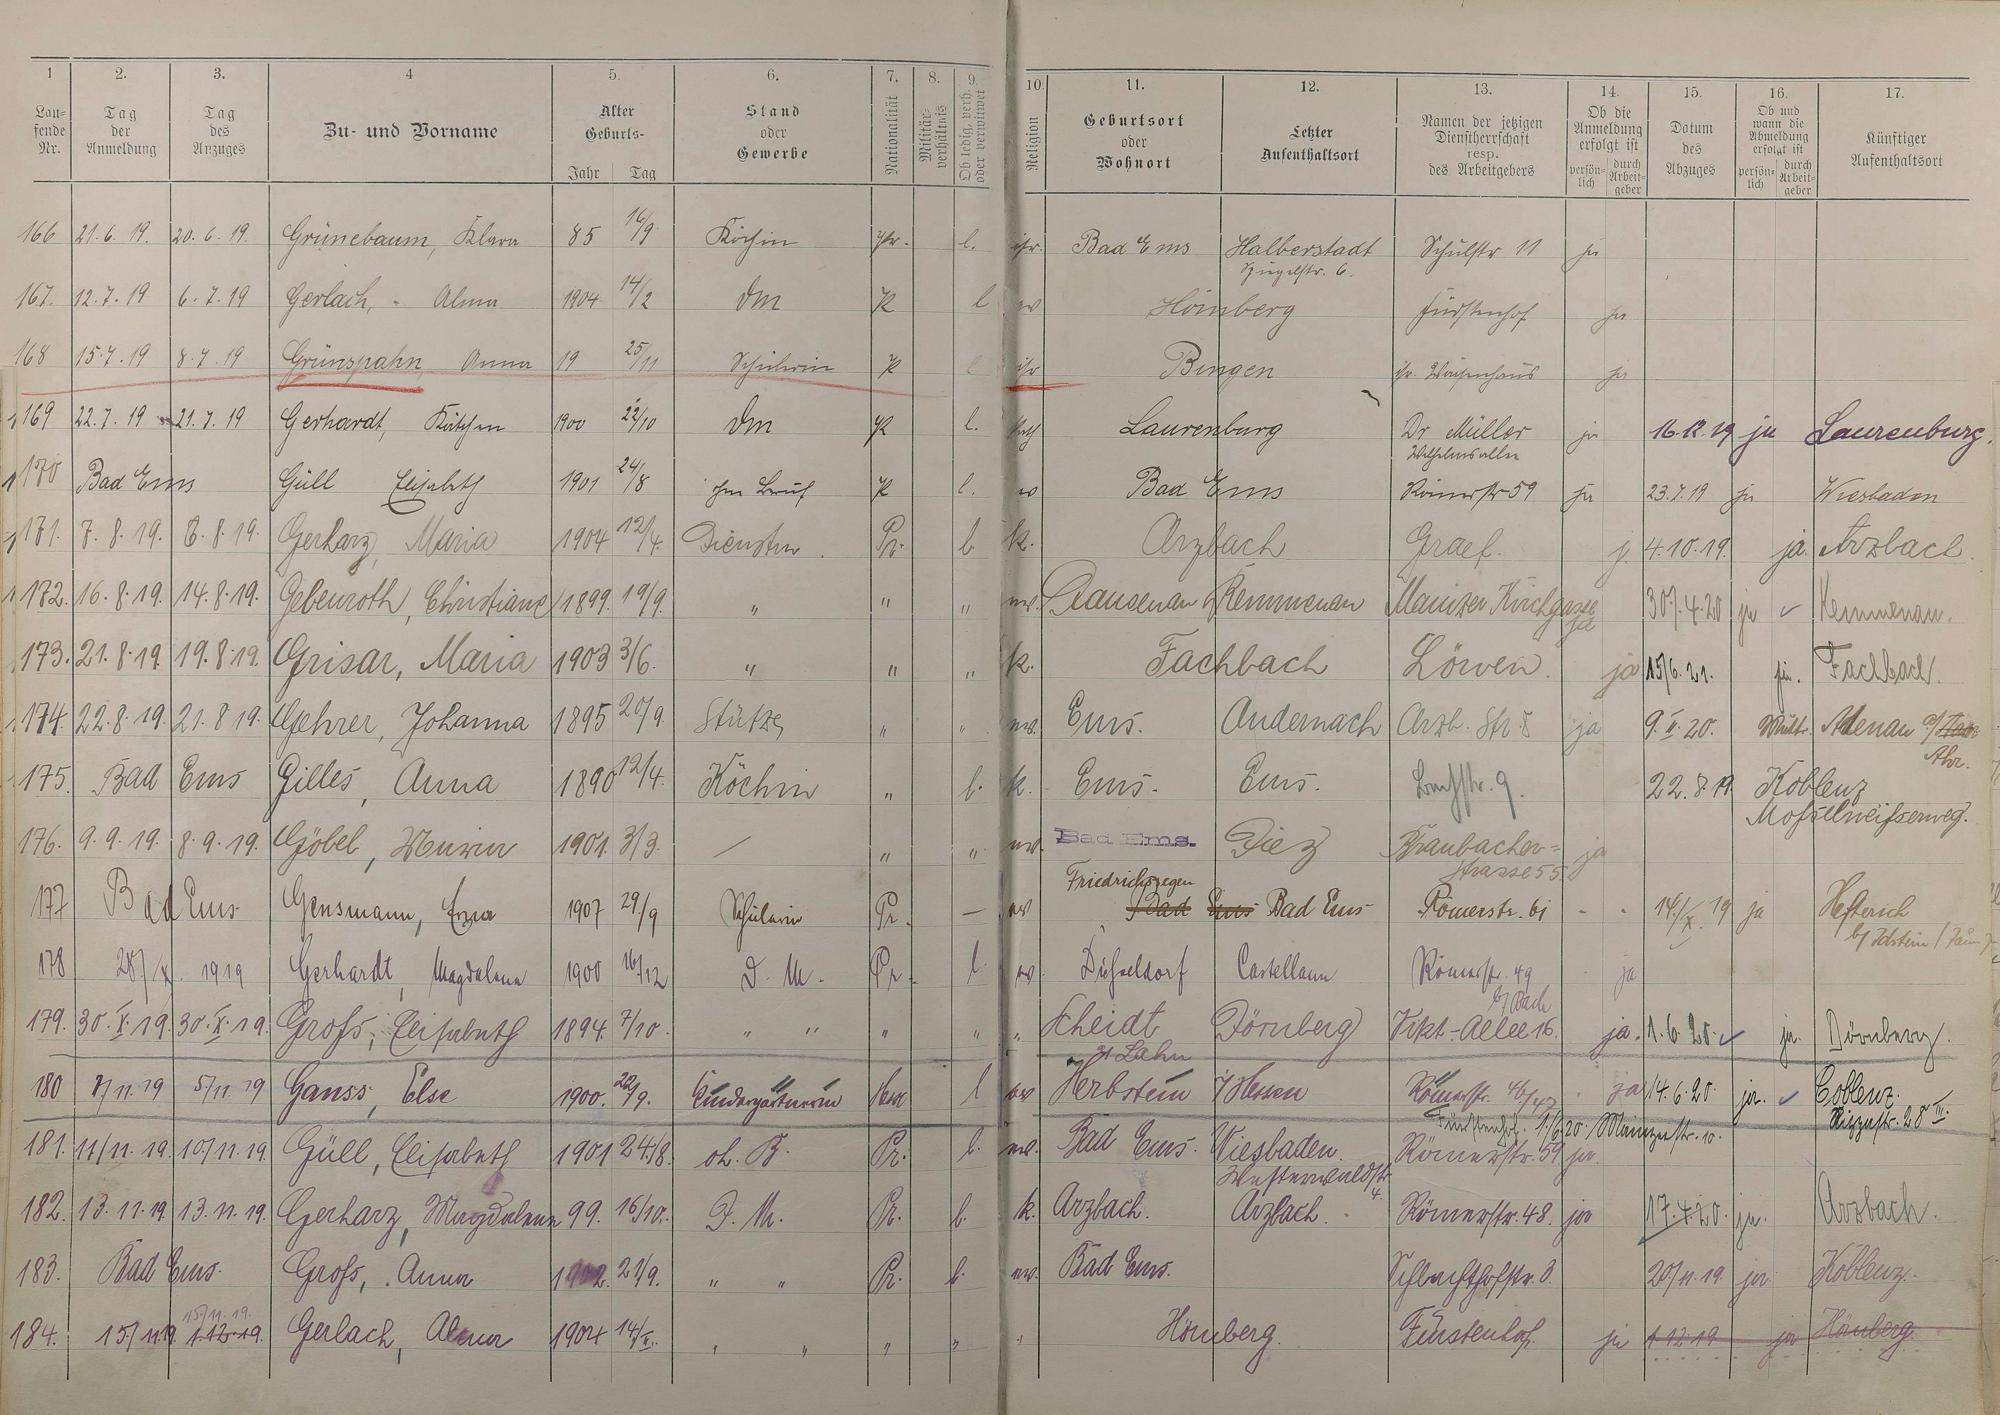 1 2. 3. 4 5. 6. 7. 8. 9. 10 11. 12. 13. 14. 15. 16. 17.
Lau-
fende
Nr.
Tag
der
Anmeldung
Tag
des
Anzuges
Zu- und Vorname
Alter
Geburts-
Jahr Tag
Stand
oder
Gewerbe
Nationalität
Militär-
verhältnis
Ob ledig, verh.
oder verwitwet
Religion
Geburtsort
oder
Wohnort
Letzter
Aufenthaltsort
Namen der jetzigen
Dienstherrschaft
resp.
des Arbeitgebers
Ob die
Anmeldung
erfolgt ist
persön-
lich
durch
Arbeit-
geber
Datum
des
Abzuges
Ob und
wann die
Abmeldung
erfolgt ist
persön-
lich
durch
Arbeit-
geber
Künftiger
Aufenthaltsort
166 21.6.19. 20.6.19. Grünebaum, Klara 85 14/9 Köchin Pr. l. isr. Bad Ems Halberstadt Schulstr 11 ja
Spiegelstr. 6.
167. 12.7.19 6.7.19 Gerlach, Alma 1904 14/2 DM Pr l ev Hömberg Fürstenhof ja
168 15.7.19 8.7.19 Grünspahn, Anna 19 25/11 Schülerin Pr l isr Bingen isr. Waisenhaus ja
169 22.7.19 21.7.19 Gerhardt, Käthchen 1900 22/10 DM Pr l. kath Laurenburg Dr Müller ja 16.12.19 ja Laurenburg.
Wilhelmsallee
170 Bad Ems Güll Elisabeth 1901 24/8 ohne Beruf Pr l. ev Bad Ems Römerstr 59 ja 23.7.19 ja Wiesbaden
171. 7.8.19. 6.8.19. Gerharz, Maria 1904 12/4. Dienstm. Pr. l. k. Arzbach Graef. j. 4.10.19. ja. Arzbach.
172. 16.8.19. 14.8.19. Gebenroth, Christiane 1899. 19/9. " " " ev. Dausenau Kemmenau Mainzer Kirchgasse ja 30.4.20 ja ✓ Kemmenau.
173. 21.8.19. 19.8.19. Grisar, Maria 1903 3/6. " " " k. Fachbach Löwen. ja 15/6.21. ja. Fachbach.
174. 22.8.19. 21.8.19. Gehrer, Johanna 1895 20/9. Stütze " " ev. Ems. Andernach Arzb. Str 8 ja 9.II.20. Adenau a/
Ahr.
175. Bad Ems Gilles, Anna 1890 12/4. Köchin " l. k. Ems. Ems. Bachstr. 9. 22.8.19. Koblenz
Moselweißerweg.
176. 9.9.19. 8.9.19. Göbel, Maria 1901. 3/3. — " " ev. Bad Ems. Diez Braubacher= ja
strasse 55.
Friedrichssegen
177 Bad Ems Gensmann, Erna 1907 29/9 Schülerin Pr. — ev Bad Ems Bad Ems Römerstr. 61 - - 14./X.19 ja Hefterich
b/Idstein /Taun
178 28/X. 1919 Gerhardt, Magdalena 1900 16/12 D. M. Pr. l ev. Düsseldorf Castellaun Römerstr. 49 - ja
b/Bach
179. 30.X.19. 30.X.19. Groß, Elisabeth 1894. 7/10. " " " " " Scheidt Dörnberg Vikt.-Allee 16. ja. 1.6.20 ✓ ja. Dörnberg.
a/Lahn
180 7/11.19 5/11.19 Ganss, Else 1900. 22/9. Kindergärtnerin Hess l ev Herbstein i/Hessen Römerstr. 46/47 ja 14.6.20 ja. ✓ Coblenz.
Fürstenhof. 1/6.20/Mainzerstr. 10. Rizzastr. 28 III.
181. 11/11.19. 10/11.19. Güll, Elisabeth 1901 24/8. oh. B. Pr. l. ev. Bad Ems. Wiesbaden. Römerstr. 59 ja.
Westerwaldstr
4.
182. 13.11.19. 13.11.19. Gerharz, Magdalena 99. 16/10. D. M. Pr. l. k. Arzbach. Arzbach. Römerstr. 48. ja 17.4.20. ja. Arzbach.
183. Bad Ems. Groß, Anna 1902. 21/9. " " Pr. l. ev. Bad Ems. Schlachthofstr. 3. 20/11.19. ja Koblenz.
15/11.19.
184. 15/11.19. 1.12.19. Gerlach, Alma 1904 14/II. " " " " " Hömberg. Fürstenhof. ja 1.12.19 ja Hömberg.